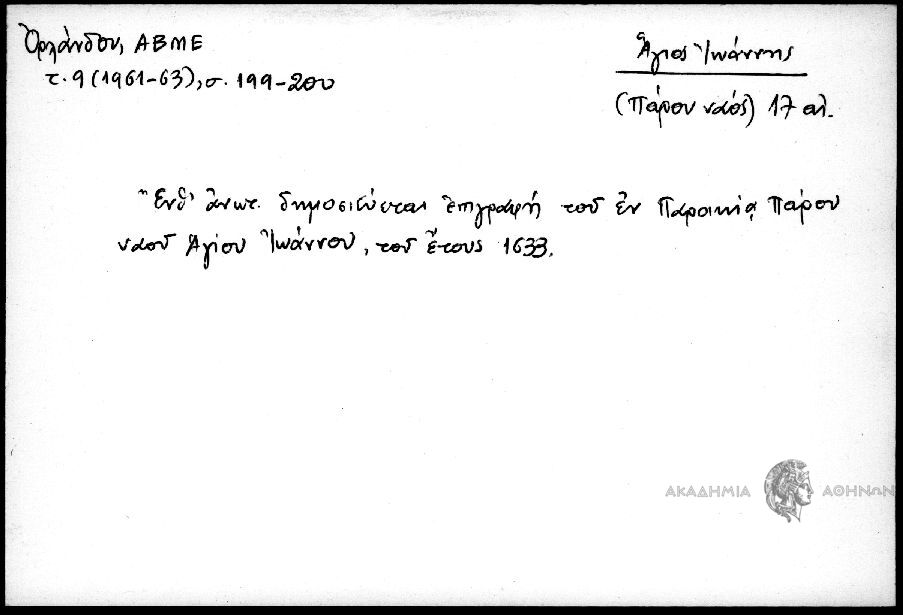 Ὀρλάνδου, ΑΒΜΕ
τ. 9 (1961-63), σ. 199-200
Ἅγιος Ἰωάννης
(Πάρου ναός) 17 αἰ.
Ἔνθ' ἀνωτ. δημοσιεύεται ἐπιγραφή τοῦ ἐν Παροικίᾳ Πάρου
ναοῦ Ἁγίου Ἰωάννου, τοῦ ἔτους 1633.
ΑΚΑΔΗΜΙΑ ΑΘΗΝΩΝ